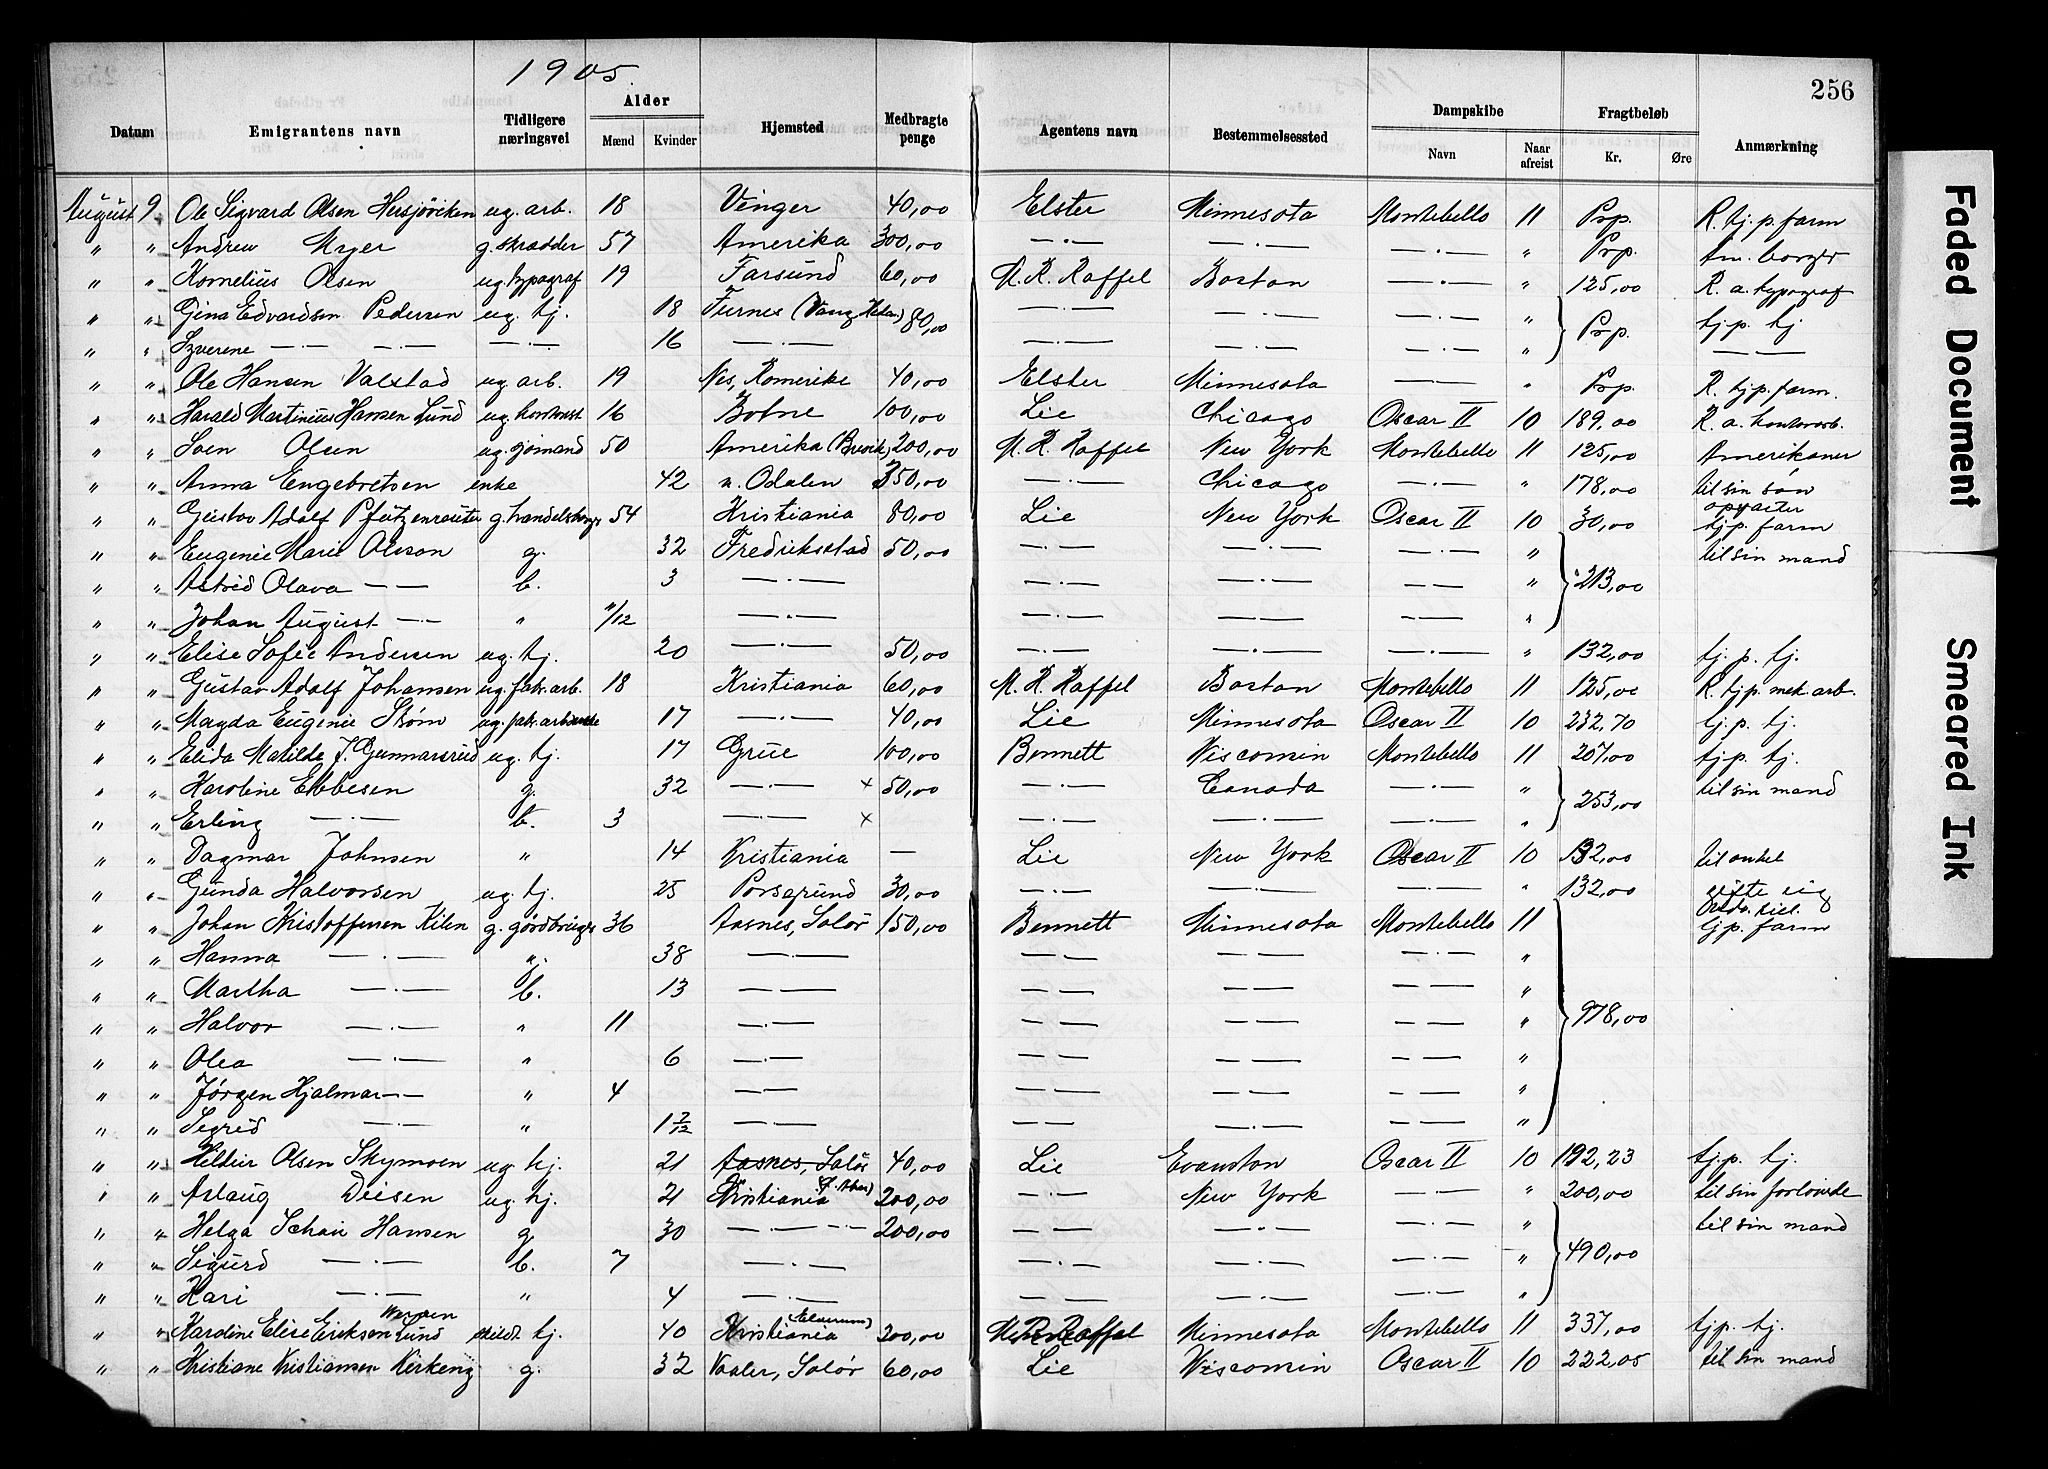 1905.
256
Datum | Emigrantens navn | Tidligere næringsvei | Alder Mænd | Kvinder | Hjemsted | Medbragte penge | Agentens navn | Bestemmelsessted | Dampskibe Navn | Naar afreist | Fragtbeløb Kr. | Øre | Anmærkning
August 9 | Ole Sigvard Olsen Hersjøviken | ug. arb. | 18 | | Vinger | 40,00 | Elster | Minnesota | Montebello | 11 | Prp. | R. tj. p. farm
" " | Andrew Myer | g. skrædder | 57 | | Amerika | 300,00 | —·— | —·— | —·— | " | Prp. | Am. borger
" " | Kornelius Olsen | ug. typograf | 19 | | Farsund | 60,00 | M. R. Raffel | Boston | —·— | " | 125,00 | R. a. typograf
" " | Gina Edvardsen Pedersen | ug. tj. | | 18 | Furnes (Vang Heden) | 80,00 | —·— | —·— | —·— | " | Prp. | tj. p. tj
" " | —·— —·— | —·— | | 16 | —·— | | —·— | —·— | —·— | " | | ——
" " | Ole Hansen Valstad | ug. arb. | 19 | | Nes, Romerike | 40,00 | Elster | Minnesota | —— | " | Prp. | R. tj. p. farm.
" " | Harald Martinius Hansen Lund | ug. | 16 | | Botne | 100,00 | Lie | Chicago | Oscar II | 10 | 189,00 | R. a. kontorarb.
" " | Olsen | ug. sjømand | 50 | | Amerika (Brevik) | 200,00 | M. R. Raffel | New York | Montebello | 11 | 125,00 | Amerikaner
" " | Anna Engebretsen | enke | | 42 | n. Odalen | 350,00 | —·— | Chicago | —·— | " | 178,00 | til sin søn
" " | Gustav Adolf Pfützenreuter | g. | 54 | | Kristiania | 80,00 | Lie | New York | Oscar II | 10 | 30,00 | opvarter tj. p. farm
" " | Eugenie Marie Olsson | g. | | 32 | Fredriksstad | 50,00 | —·— | —·— | —·— | " | 213,00 | til sin mand
" " | Astrid Olava —— | b. | | 3 | —·— | | —·— | —·— | —— | "
" " | Johan August —·— | " | 11/12 | | —·— | | —·— | —·— | —— | "
" " | Elise Sofie Andersen | ug. tj. | | 20 | —·— | 50,00 | —·— | —·— | —·— | " | 132,00 | tj. p. tj.
" " | Gustav Adolf Johansen | ug. fabr. arb. | 18 | | Kristiania | 60,00 | M. R. Raffel | Boston | Montebello | 11 | 125,00 | R. tj. p. mek. arb.
" " | Magda Eugenie Strøm | ug. fabr. | | 17 | —·— | 40,00 | Lie | Minnesota | Oscar II | 10 | 232,70 | tj. p. tj.
" " | Elida Matilde J. Gunnarsrud | ug. tj. | | 17 | Grue | 100,00 | Bennett | Visconsin | Montebello | 11 | 207,00 | tj. p. tj.
" " | Karoline Ebbesen | g. | | 32 | —·— x | 50,00 | —·— | Canada | —·— | " | 253,00 | til sin mand
" " | Erling —·— | b. | 3 | | —·— x | | —·— | —·— | —·— | "
" " | Dagmar Johnsen | " | | 14 | Kristiania | — | Lie | New York | Oscar II | 10 | 132,00 | til onkel
" " | Gunda Halvorsen | ug. tj. | | 25 | Porsgrund | 30,00 | —·— | —·— | —·— | " | 132,00 | gifte sig
" " | Johan Kristoffersen Kilen | g. gårdbruger | 36 | | Aasnes, Solør | 150,00 | Bennett | Minnesota | Montebello | 11 | 978,00 | tj. p. farm
" " | Hanna —·— | g. | | 38 | —·— | | —— | —— | —·— | "
" " | Martha —·— | b. | | 13 | —·— | | —— | —— | —— | "
" " | Halvor —·— | " | 11 | | —·— | | —— | —— | —— | "
" " | Olea —·— | " | | 6 | —·— | | —— | —— | —— | "
" " | Jørgen Hjalmar —·— | " | 4 | | —— | | —— | —— | —— | "
" " | Sigrid —·— | " | | 1 7/12 | —·— | | —— | —·— | —— | "
" " | Olsen Skymoen | ug. tj. | | 21 | Aasnes, Solør | 40,00 | Lie | Evanston | Oscar II | 10 | 192,23 | tj. p. tj.
" " | Aslaug | ug. tj. | | 21 | Kristiania | 200,00 | —·— | New York | —·— | " | 200,00 | til sin forlovede
" " | Helga Schau Hansen | g. | | 30 | —·— | 200,00 | —— | —·— | —·— | " | 490,00 | til sin mand
" " | Sigurd —·— | b. | 7 | | —·— | | —·— | —·— | —·— | "
" " | Kari —·— | " | | 4 | —·— | | —·— | —·— | —·— | "
" " | Karoline Elise Eriksen Lund | skildt tj. | | 40 | Kristiania (Elverum) | 200,00 | M. R. Raffel | Minnesota | Montebello | 11 | 337,00 | tj. p. tj.
" " | Kristiane Kristiansen Kirkeng | g. | | 32 | Vaaler, Solør | 60,00 | Lie | Wisconsin | Oscar II | 10 | 222,05 | til sin mand
Faded Document
Smeared Ink